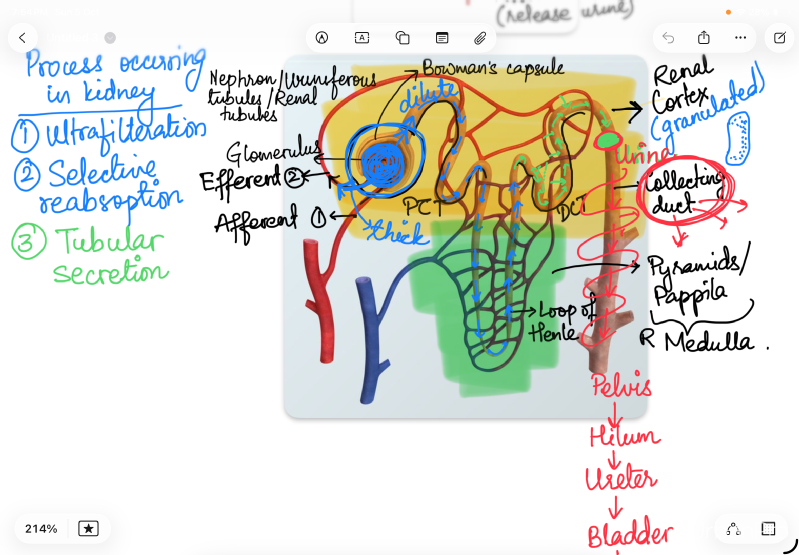 (release urine)
Process occurring
in kidney
① Ultrafilteration
② Selective
reabsoption
③ Tubular
secretion
Nephron/Uriniferous
tubules/Renal
tubules
Bowman's capsule
dilute
Glomerulus
Efferent ②
Afferent ①
thick
PCT
DCT
Loop of
Henle
Renal
Cortex
(granulated)
Urine
Collecting
duct
Pyramids/
Pappila
R Medulla.
Pelvis
Hilum
Ureter
Bladder
214%